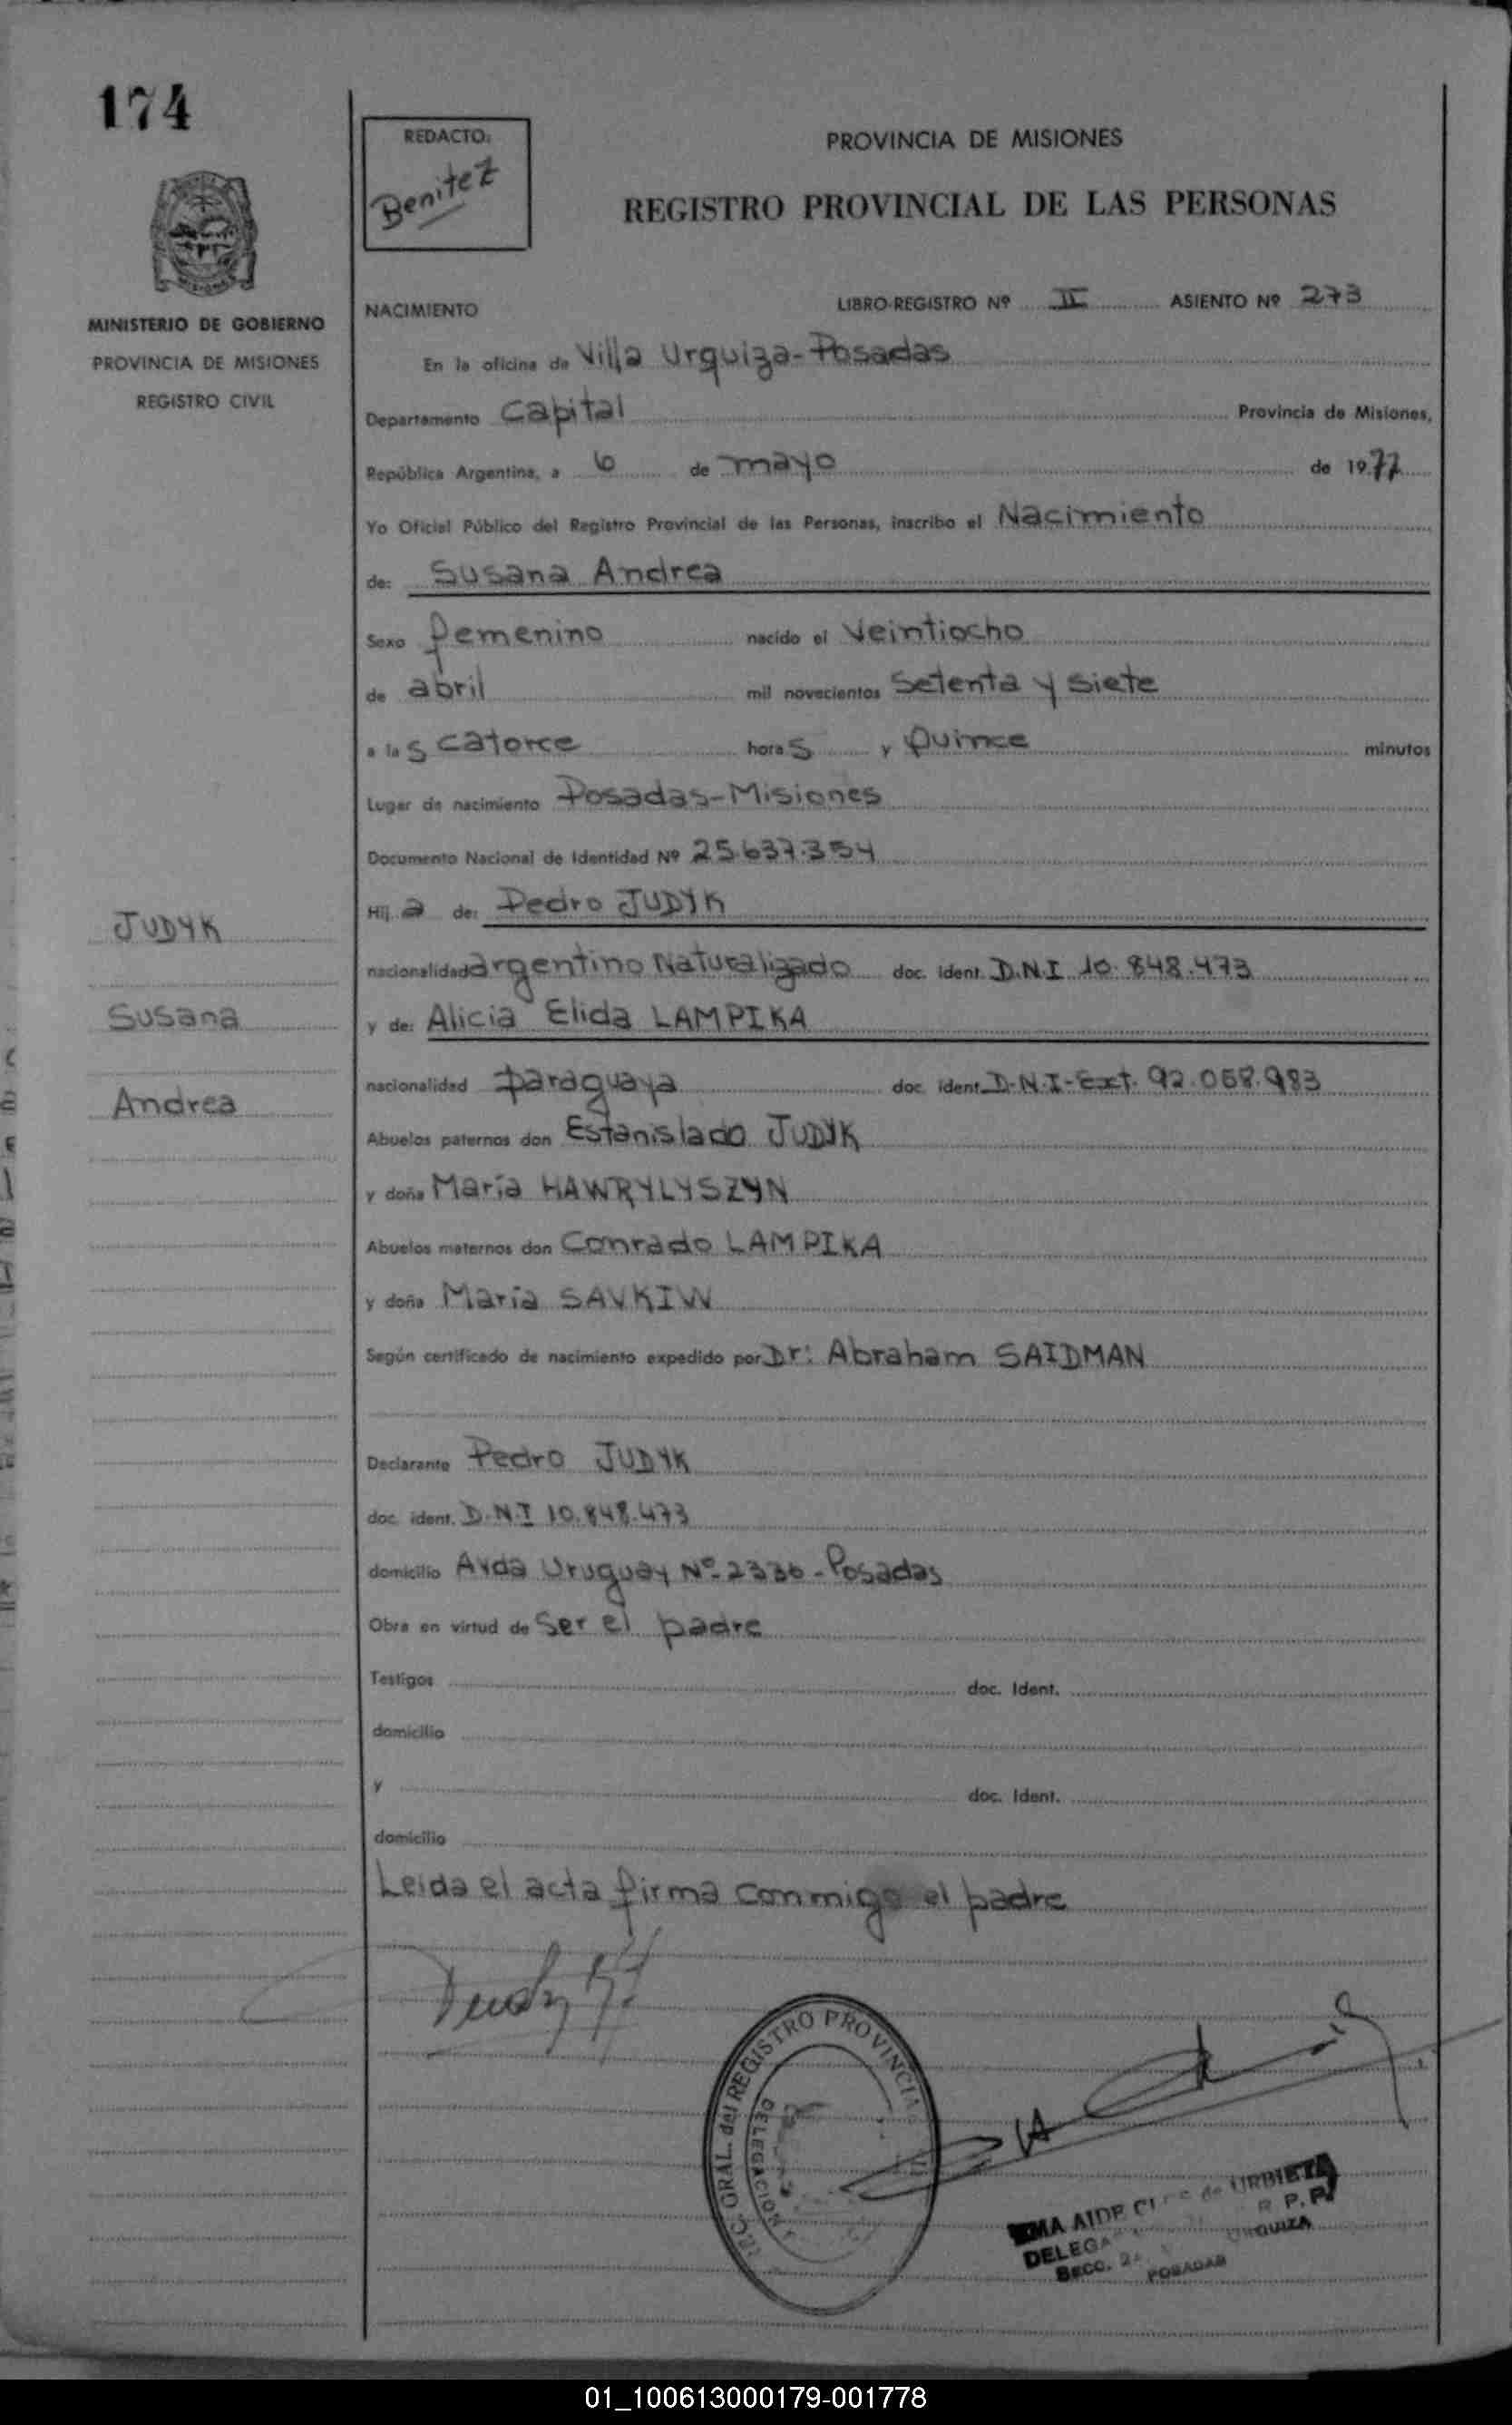 174
REDACTO:
Benitez
PROVINCIA DE MISIONES
REGISTRO PROVINCIAL DE LAS PERSONAS
MINISTERIO DE GOBIERNO
PROVINCIA DE MISIONES
REGISTRO CIVIL
NACIMIENTO LIBRO-REGISTRO Nº II ASIENTO Nº 273
En la oficina de Villa Urquiza-Posadas
Departamento Capital Provincia de Misiones,
República Argentina, a 6 de mayo de 1977
Yo Oficial Público del Registro Provincial de las Personas, inscribo el Nacimiento
de: Susana Andrea
Sexo femenino nacido el Veintiocho
de abril mil novecientos Setenta y Siete
a las catorce horas y Quince minutos
Lugar de nacimiento Posadas-Misiones
Documento Nacional de Identidad Nº 25.637.354
Hija de: Pedro JUDYK
JUDYK
nacionalidad argentino Naturalizado doc. ident. D.N.I 10.848.473
Susana
y de: Alicia Elida LAMPIKA
nacionalidad paraguaya doc. ident. D.N.I-Ext. 92.068.983
Andrea
Abuelos paternos don Estanislado JUDYK
y doña María HAWRYLYSZYN
Abuelos maternos don Conrado LAMPIKA
y doña María SAVKIW
Según certificado de nacimiento expedido por Dr: Abraham SAIDMAN
Declarante Pedro JUDYK
doc. ident. D.N.I 10.848.473
domicilio Avda Uruguay Nº 2336-Posadas
Obra en virtud de Ser el padre
Testigos doc. Ident.
domicilio
y doc. Ident.
domicilio
Leida el acta firma conmigo el padre
GRAL. del REGISTRO PROVINCIAL
DELEGACION
AIDE de URBIETA
R. P. P.
DELEGA URQUIZA
SECC. 2a POSADAS
01_100613000179-001778